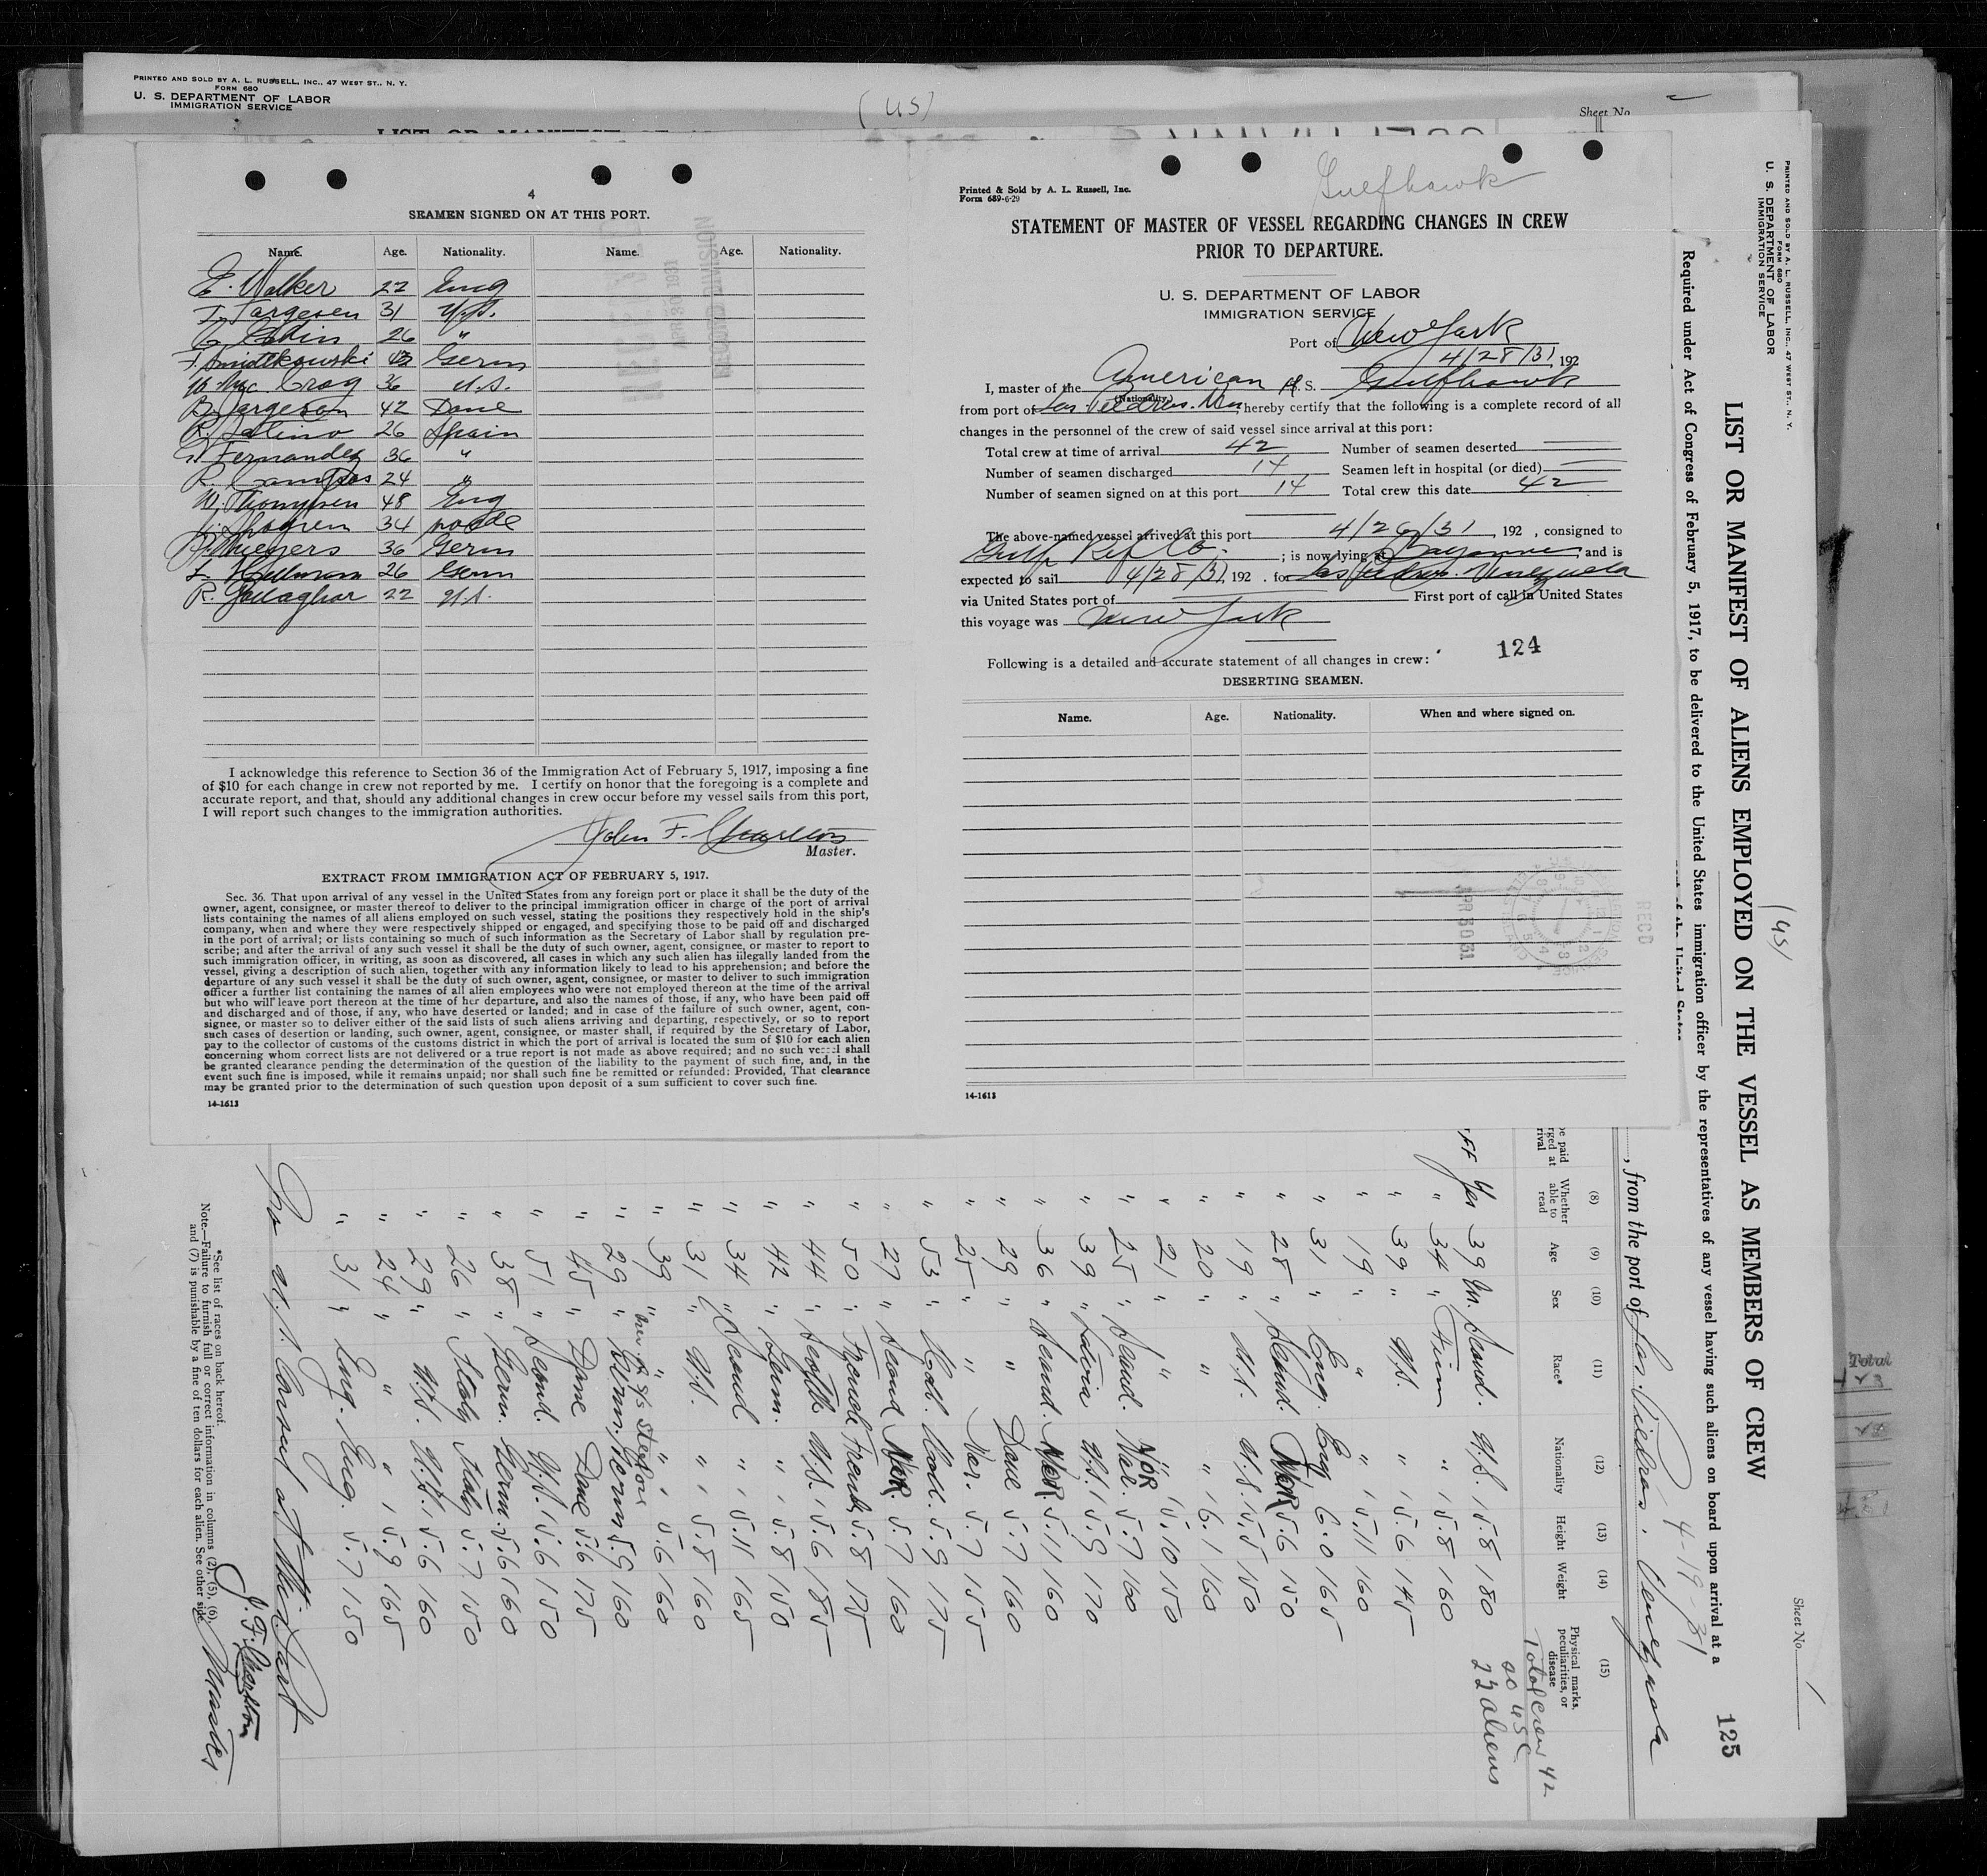 PRINTED AND SOLD BY A. L. RUSSELL, INC., 47 WEST ST., N. Y.
FORM 680
U. S. DEPARTMENT OF LABOR
IMMIGRATION SERVICE
(US)
Sheet No.
4
SEAMEN SIGNED ON AT THIS PORT.
Name. Age. Nationality. Name. Age. Nationality.
E. Walker 22 Eng
Torgesen 31 U.S.
26 "
Germ
Mc Crag 36 U.S.
B. Jorgeson 42 Dane
R. 26 Spain
Fernandez 36 "
R. Campos 24 "
W. Thompsen 48 Eng
34
Meyers 36 Germ
Hellmann 26 Germ
R. Gallaghar 22 U.S.
APR 30 1931
RECORD DIVISION
I acknowledge this reference to Section 36 of the Immigration Act of February 5, 1917, imposing a fine
of $10 for each change in crew not reported by me. I certify on honor that the foregoing is a complete and
accurate report, and that, should any additional changes in crew occur before my vessel sails from this port,
I will report such changes to the immigration authorities.
John F. Charlton
Master.
EXTRACT FROM IMMIGRATION ACT OF FEBRUARY 5, 1917.
Sec. 36. That upon arrival of any vessel in the United States from any foreign port or place it shall be the duty of the
owner, agent, consignee, or master thereof to deliver to the principal immigration officer in charge of the port of arrival
lists containing the names of all aliens employed on such vessel, stating the positions they respectively hold in the ship's
company, when and where they were respectively shipped or engaged, and specifying those to be paid off and discharged
in the port of arrival; or lists containing so much of such information as the Secretary of Labor shall by regulation pre-
scribe; and after the arrival of any such vessel it shall be the duty of such owner, agent, consignee, or master to report to
such immigration officer, in writing, as soon as discovered, all cases in which any such alien has illegally landed from the
vessel, giving a description of such alien, together with any information likely to lead to his apprehension; and before the
departure of any such vessel it shall be the duty of such owner, agent, consignee, or master to deliver to such immigration
officer a further list containing the names of all alien employees who were not employed thereon at the time of the arrival
but who will leave port thereon at the time of her departure, and also the names of those, if any, who have been paid off
and discharged and of those, if any, who have deserted or landed; and in case of the failure of such owner, agent, con-
signee, or master so to deliver either of the said lists of such aliens arriving and departing, respectively, or so to report
such cases of desertion or landing, such owner, agent, consignee, or master shall, if required by the Secretary of Labor,
pay to the collector of customs of the customs district in which the port of arrival is located the sum of $10 for each alien
concerning whom correct lists are not delivered or a true report is not made as above required; and no such vessel shall
be granted clearance pending the determination of the question of the liability to the payment of such fine, and, in the
event such fine is imposed, while it remains unpaid; nor shall such fine be remitted or refunded: Provided, That clearance
may be granted prior to the determination of such question upon deposit of a sum sufficient to cover such fine.
14-1613
Gulfhawk
Printed & Sold by A. L. Russell, Inc.
Form 689-6-29
STATEMENT OF MASTER OF VESSEL REGARDING CHANGES IN CREW
PRIOR TO DEPARTURE.
U. S. DEPARTMENT OF LABOR
IMMIGRATION SERVICE
Port of New York
4/28/31, 192
I, master of the American S. S. Gulfhawk
(Nationality.)
from port of Las Piedras. Ven hereby certify that the following is a complete record of all
changes in the personnel of the crew of said vessel since arrival at this port:
Total crew at time of arrival 42 Number of seamen deserted
Number of seamen discharged 14 Seamen left in hospital (or died)
Number of seamen signed on at this port 14 Total crew this date 42
The above-named vessel arrived at this port 4/26/31, 192 , consigned to
Gulf Ref Co. ; is now lying at Bayonne, and is
expected to sail 4/28/31, 192 . for Las Piedras. Venezuela
via United States port of First port of call in United States
this voyage was New York
124
Following is a detailed and accurate statement of all changes in crew:
DESERTING SEAMEN.
Name. Age. Nationality. When and where signed on.
APR 30 31
RECD
14-1613
PRINTED AND SOLD BY A. L. RUSSELL, INC., 47 WEST ST., N. Y.
FORM 680
U. S. DEPARTMENT OF LABOR
IMMIGRATION SERVICE
(US)
Sheet No. 1
LIST OR MANIFEST OF ALIENS EMPLOYED ON THE VESSEL AS MEMBERS OF CREW
125
Required under Act of Congress of February 5, 1917, to be delivered to the United States immigration officer by the representatives of any vessel having such aliens on board upon arrival at a
, from the port of Las Piedras. Venezuela
4-19-31
(8) (9) (10) (11) (12) (13) (14) (15)
Whether able to read Age Sex Race* Nationality Height Weight Physical marks, peculiarities, or disease
Total crew 42
20 USC
22 aliens
Yes 39 M. Scand. U.S. 5.8 180
" 34 " Finn " 5.8 160
" 39 " U.S. " 5.6 145
" 19 " " " 5.11 160
" 31 " Eng. Eng 6.0 165
" 28 " Scand. NOR 5.6 150
" 19 " U.S. U.S. 5.5 150
" 20 " " " 6.1 160
" 21 " " " 5.10 150
" 25 " Scand. Nor. NOR 5.7 160
" 39 " Latvia U.S. 5.9 170
" 36 " Scand. NOR. 5.11 160
" 29 " " Dane 5.7 160
" 25 " " Nor. 5.7 155
" 53 " Holl. Holl. 5.9 175
" 27 " Scand NOR. 5.7 160
" 50 " French French 5.8 175
" 44 " Scotch U.S. 5.6 185
" 42 " Germ. " 5.8 150
" 34 " Scand " 5.11 165
" 31 " U.S. " 5.8 160
" 39 " " " 5.6 160
" 29 " Germ. Germ 5.9 160
" 45 " Dane Dane 5.6 175
" 51 " Scand. U.S. 5.6 150
" 38 " Germ. Germ. 5.6 160
" 26 " Italy Italy 5.7 150
" 29 " U.S. U.S. 5.6 160
" 24 " " " 5.9 165
" 31 " Eng. Eng. 5.7 150
No U.S. Consul at this Port
J. F. Charlton Master
*See list of races on back hereof.
Note.—Failure to furnish full or correct information in columns (2), (5), (6),
and (7) is punishable by a fine of ten dollars for each alien. See other side.
Total